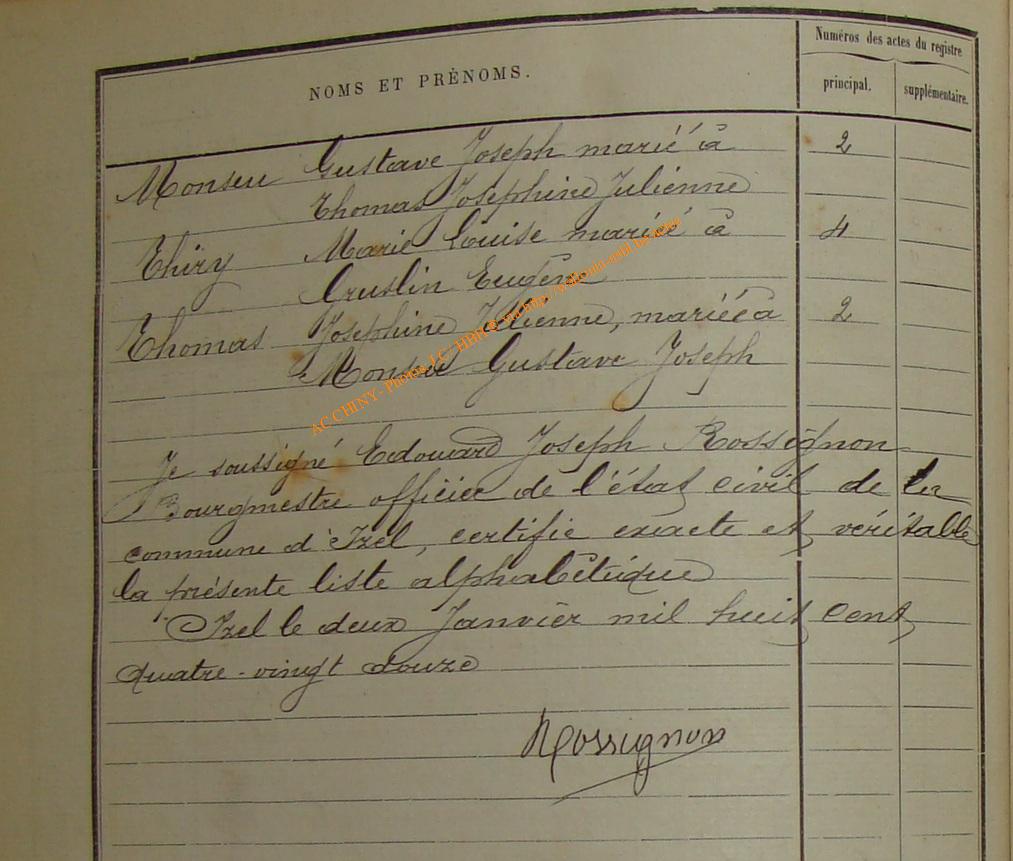 NOMS ET PRÉNOMS.
Numéros des actes du registre
principal.
supplémentaire.
Monseu Gustave Joseph marié à 2
Thomas Josephine Julienne
Thiry Marie Louise mariée à 4
Gruslin Eugène
Thomas Josephine Julienne, mariée à 2
Monseu Gustave Joseph
Je soussigné Edouard Joseph Rossignon
Bourgmestre officier de l'état civil de la
commune d'Izel, certifie exacte et véritable
la présente liste alphabétique
Izel le deux Janvier mil huit cent
quatre-vingt douze
Rossignon
AC CHINY - Photos J.C. HBIH